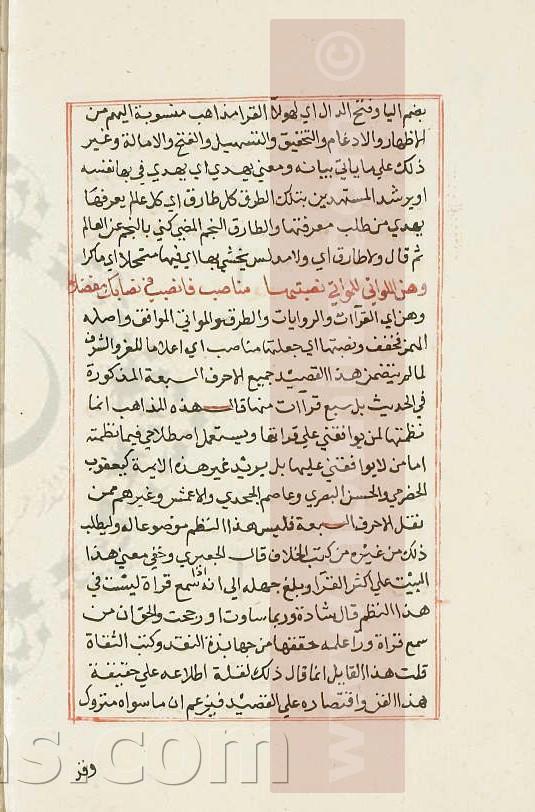 بضم اليا وفتح الدال اي لهولا القرا مذاهب منسوبة اليهم من
الاظهار والادغام والتحقيق والتسهيل والفتح والامالة وغير
ذلك علي ما ياتي بيانه ومعني يهدي اي يهدي في بها نفسه
او يرشد المستهدين بتلك الطرق كل طارق اي كل عالم يعرفها
يهدي من طلب معرفتها والطارق النجم المضي كني بالنجم عن العالم
ثم قال ولا طارق اي ولا مدلس يخشي بها اي فيها متمحلا اي ماكرا
وهن اللواتي للمواتي نصبتها مناصب فانصب في نصابك مفضلا
وهن اي القرآات والروايات والطرق والمواتي الموافق واصله
الهمز فخفف ونصبتها اي جعلتها مناصب اي اعلاما للعز والشرف
لما لم يتضمن هذا القصيد جميع الاحرف السبعة المذكورة
في الحديث بل سبع قرآات منها قال هذه المذاهب انما
نظمتها لمن يوافقني علي قراتها ويستعمل اصطلاحي فيما نظمته
اما من لا يوافقني عليها بل يريد غير هذه الايمة كيعقوب
الحضرمي والحسن البصري وعاصم الجحدري والاعمش وغيرهم ممن
نقل الاحرف السبعة فليس هذا النظم موضوعا له وليطلب
ذلك من غيره من كتب الخلاف قال الجعبري وخفي معني هذا
البيت علي اكثر القرا وبلغ جهله الي انه اذا سمع قراة ليست في
هذا النظم قال شاذة وربما ساوت او رجحت والحق ان من
سمع قراة وراعلمه حققها من جهابذة النقد وكتب الثقاة
قلت هذا القايل انما قال ذلك لقلة اطلاعه علي حقيقة
هذا الفن واقتصاره علي القصيد فيزعم ان ما سواه متروك
وقز
www.
s.com
©